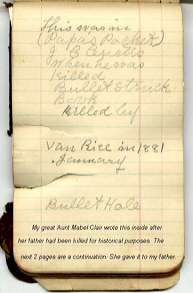 This was in
(Papas Pocket)
J B
When he was
Killed
Bullet Struck
Book
Killed by
Van Rice in 1881
January
Bullet Hole
My great Aunt Mabel Clair wrote this inside after
her father had been killed for historical purposes. The
next 2 pages are a continuation. She gave it to my father.